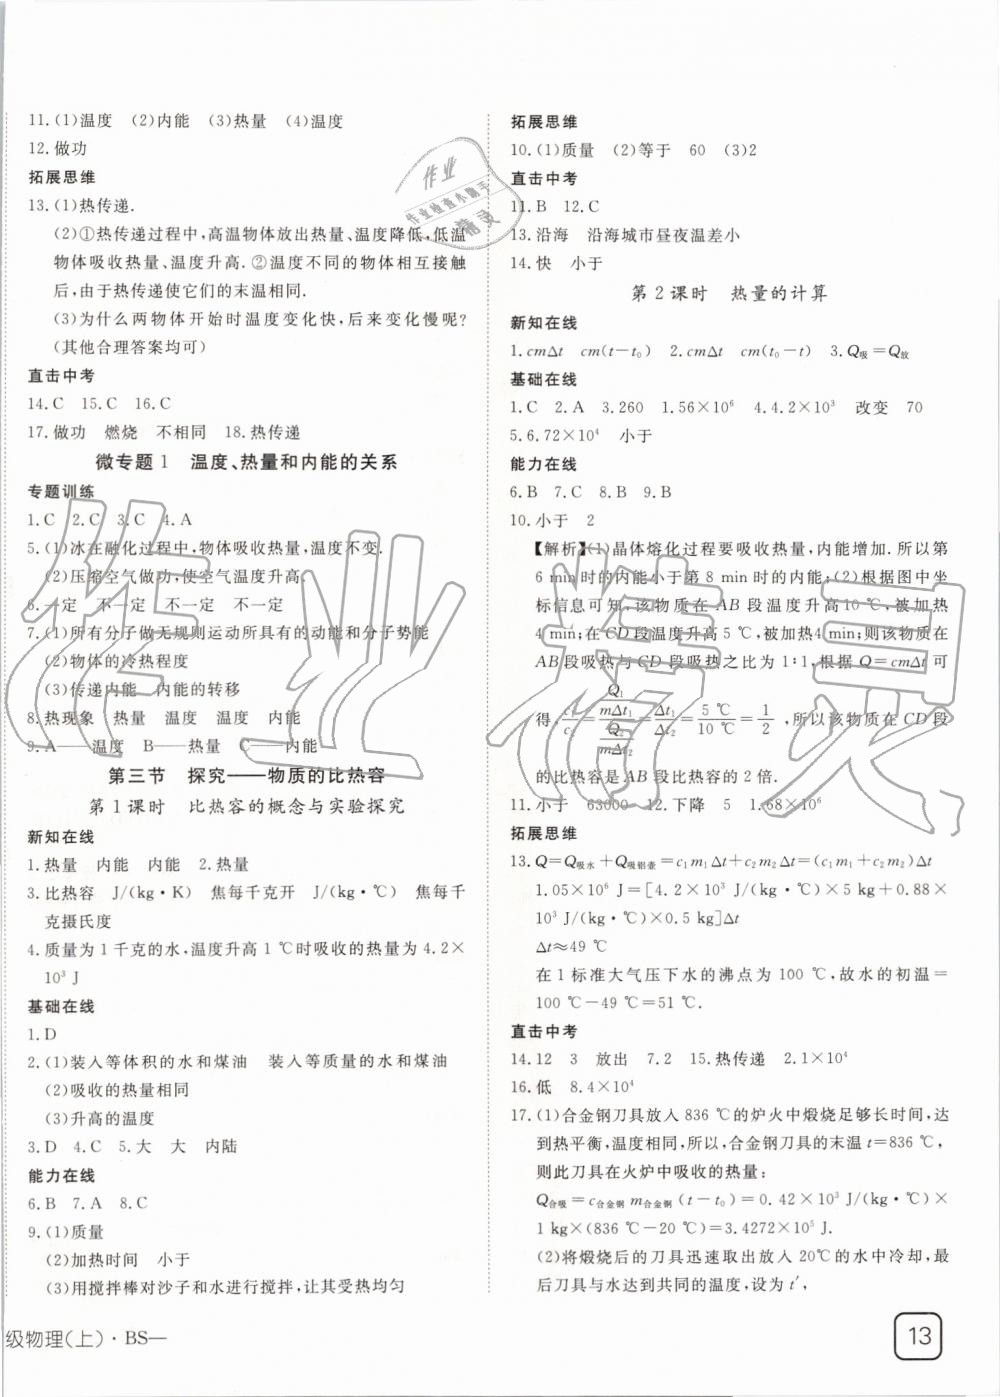 11.(1)温度 (2)内能 (3)热量 (4)温度
12.做功
拓展思维
13.(1)热传递.
(2)①热传递过程中,高温物体放出热量、温度降低,低温
物体吸收热量、温度升高.②温度不同的物体相互接触
后,由于热传递使它们的末温相同.
(3)为什么两物体开始时温度变化快,后来变化慢呢?
(其他合理答案均可)
直击中考
14.C 15.C 16.C
17.做功 燃烧 不相同 18.热传递
微专题1 温度、热量和内能的关系
专题训练
1.C 2.C 3.C 4.A
5.(1)冰在融化过程中,物体吸收热量,温度不变.
(2)压缩空气做功,使空气温度升高.
6.一定 不一定 不一定 不一定
7.(1)所有分子做无规则运动所具有的动能和分子势能
(2)物体的冷热程度
(3)传递内能 内能的转移
8.热现象 热量 温度 温度 内能
9.A——温度 B——热量 C——内能
第三节 探究——物质的比热容
第1课时 比热容的概念与实验探究
新知在线
1.热量 内能 内能 2.热量
3.比热容 J/(kg·K) 焦每千克开 J/(kg·℃) 焦每千
克摄氏度
4.质量为1千克的水,温度升高1 ℃时吸收的热量为4.2×
10³ J
基础在线
1.D
2.(1)装入等体积的水和煤油 装入等质量的水和煤油
(2)吸收的热量相同
(3)升高的温度
3.D 4.C 5.大 大 内陆
能力在线
6.B 7.A 8.C
9.(1)质量
(2)加热时间 小于
(3)用搅拌棒对沙子和水进行搅拌,让其受热均匀
级物理(上)·BS—
拓展思维
10.(1)质量 (2)等于 60 (3)2
直击中考
11.B 12.C
13.沿海 沿海城市昼夜温差小
14.快 小于
第2课时 热量的计算
新知在线
1.cmΔt cm(t−t₀) 2.cmΔt cm(t₀−t) 3.Q吸=Q放
基础在线
1.C 2.A 3.260 1.56×10⁶ 4.4.2×10³ 改变 70
5.6.72×10⁴ 小于
能力在线
6.B 7.C 8.B 9.B
10.小于 2
【解析】(1)晶体熔化过程要吸收热量,内能增加.所以第
6 min时的内能小于第8 min时的内能;(2)根据图中坐
标信息可知,该物质在AB段温度升高10 ℃,被加热
4 min;在CD段温度升高5 ℃,被加热4 min;则该物质在
AB段吸热与CD段吸热之比为1∶1,根据Q=cmΔt可
得,c/c=(Q₁/mΔt₁)/(Q₂/mΔt₂)=Δt₁/Δt₂=5 ℃/10 ℃=1/2,所以该物质在CD段
的比热容是AB段比热容的2倍.
11.小于 63000 12.下降 5 1.68×10⁶
拓展思维
13.Q=Q吸水+Q吸铝壶=c₁m₁Δt+c₂m₂Δt=(c₁m₁+c₂m₂)Δt
1.05×10⁶ J=[4.2×10³ J/(kg·℃)×5 kg+0.88×
10³ J/(kg·℃)×0.5 kg]Δt
Δt≈49 ℃
在1标准大气压下水的沸点为100 ℃,故水的初温=
100 ℃−49 ℃=51 ℃.
直击中考
14.12 3 放出 7.2 15.热传递 2.1×10⁴
16.低 8.4×10⁴
17.(1)合金钢刀具放入836 ℃的炉火中煅烧足够长时间,达
到热平衡,温度相同,所以,合金钢刀具的末温t=836 ℃,
则此刀具在火炉中吸收的热量:
Q合吸=c合金钢m合金钢(t−t₀)=0.42×10³ J/(kg·℃)×
1 kg×(836 ℃−20 ℃)=3.4272×10⁵ J.
(2)将煅烧后的刀具迅速取出放入20℃的水中冷却,最
后刀具与水达到共同的温度,设为t′,
13
作业
作业检查小助手
精灵
作业精灵